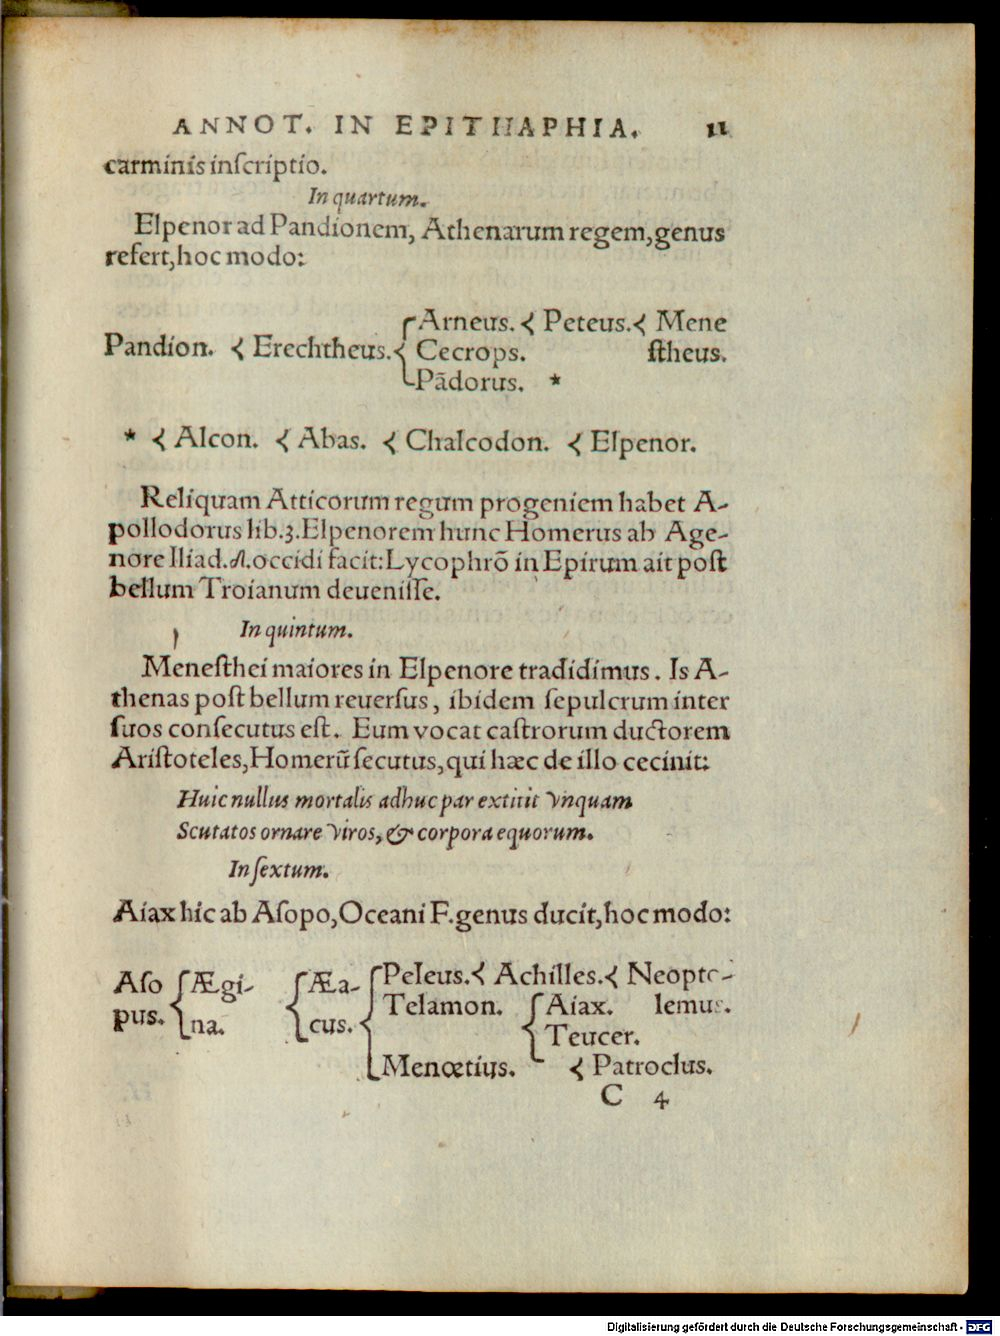 ANNOT. IN EPITHAPHIA. 11
carminis inſcriptio.
In quartum.
Elpenor ad Pandionem, Athenarum regem,genus
refert,hoc modo:
Arneus. ⁌ Peteus. ⁌ Mene
Pandion. { Erechtheus. { Cecrops. ſtheus.
Pādorus. *
* { Alcon. { Abas. { Chalcodon. { Elpenor.
Reliquam Atticorum regum progeniem habet A-
pollodorus lib.3.Elpenorem hunc Homerus ab Age-
nore Iliad.Δ.occidi facit:Lycophrō in Epirum ait poſt
bellum Troianum deueniſſe.
In quintum.
Meneſthei maiores in Elpenore tradidimus. Is A-
thenas poſt bellum reuerſus, ibidem ſepulcrum inter
ſuos conſecutus eſt. Eum vocat caſtrorum ductorem
Ariſtoteles,Homerũ ſecutus,qui hæc de illo cecinit:
Huic nullus mortalis adhuc par extitit vnquam
Scutatos ornare viros, & corpora equorum.
In ſextum.
Aiax hic ab Aſopo,Oceani F.genus ducit,hoc modo:
Aſo { Ægi- { Æa- { Peleus. { Achilles. { Neopto-
pus. na. cus. Telamon. { Aiax. lemus.
Teucer.
Menœtius. { Patroclus.
C 4
Digitalisierung gefördert durch die Deutsche Forschungsgemeinschaft - DFG